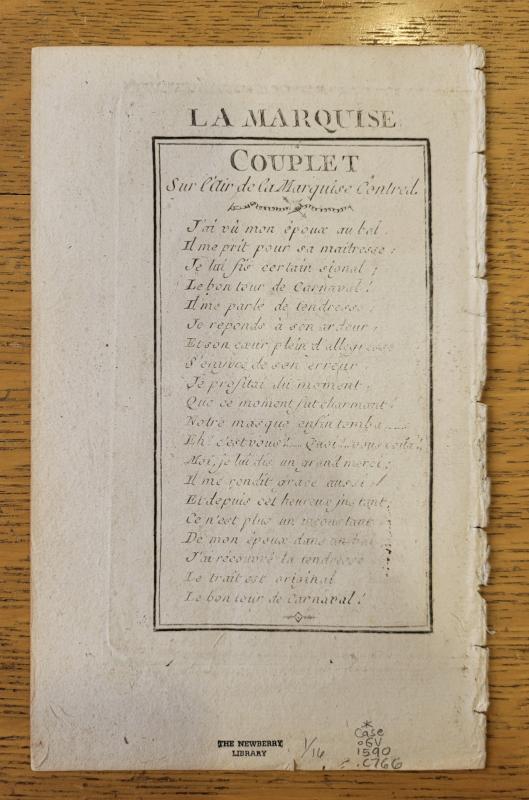 LA MARQUISE
COUPLET
Sur l'Air de la Marquise Contred.
J'ai vû mon époux au bal.
Il me prit pour sa maitresse;
Je lui fis certain signal;
Le bon tour de Carnaval!
Il me parle de tendresse;
Je reponds à son ardeur;
Et son cœur plein d'allegresse
S'enivre de son erreur
Je profitai du moment;
Que ce moment fut charmant!
Notre masque enfin tomba
Eh! c'est vous! .... Quoi! .. vous voila!
Moi, je lui dis un grand merci;
Il me rendit grace aussi
Et depuis cet heureux instant,
Ce n'est plus un inconstant
De mon époux dans un bal
J'ai récouvré la tendresse
Le trait est original
Le bon tour de Carnaval!
THE NEWBERRY
LIBRARY
1/16
*
Case
oGV
1590
.C766